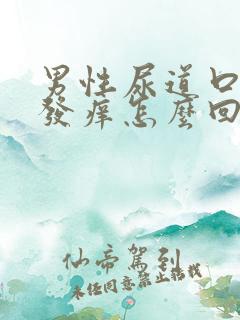 男性尿道口
發癢怎麼回
仙帝駕到
未經同意禁止轉載